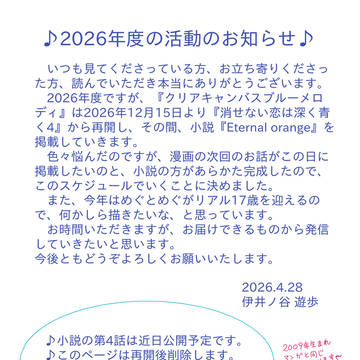 ♪2026年度の活動のお知らせ♪
いつも見てくださっている方、お立ち寄りくださっ
た方、読んでいただき本当にありがとうございます。
2026年度ですが、『クリアキャンバスブルーメロ
ディ』は2026年12月15日より『消せない恋は深く青
く4』から再開し、その間、小説『Eternal orange』を
掲載していきます。
色々悩んだのですが、漫画の次回のお話がこの日に
掲載したいのと、小説の方があらかた完成したので、
このスケジュールでいくことに決めました。
また、今年はめぐとめぐがリアル17歳を迎えるの
で、何かしら描きたいな、と思っています。
お時間いただきますが、お届けできるものから発信
していきたいと思います。
今後ともどうぞよろしくお願いいたします。
2026.4.28
伊井ノ谷 遊歩
♪小説の第4話は近日公開予定です。
♪このページは再開後削除します。
2009年生まれ
マンガと同じ